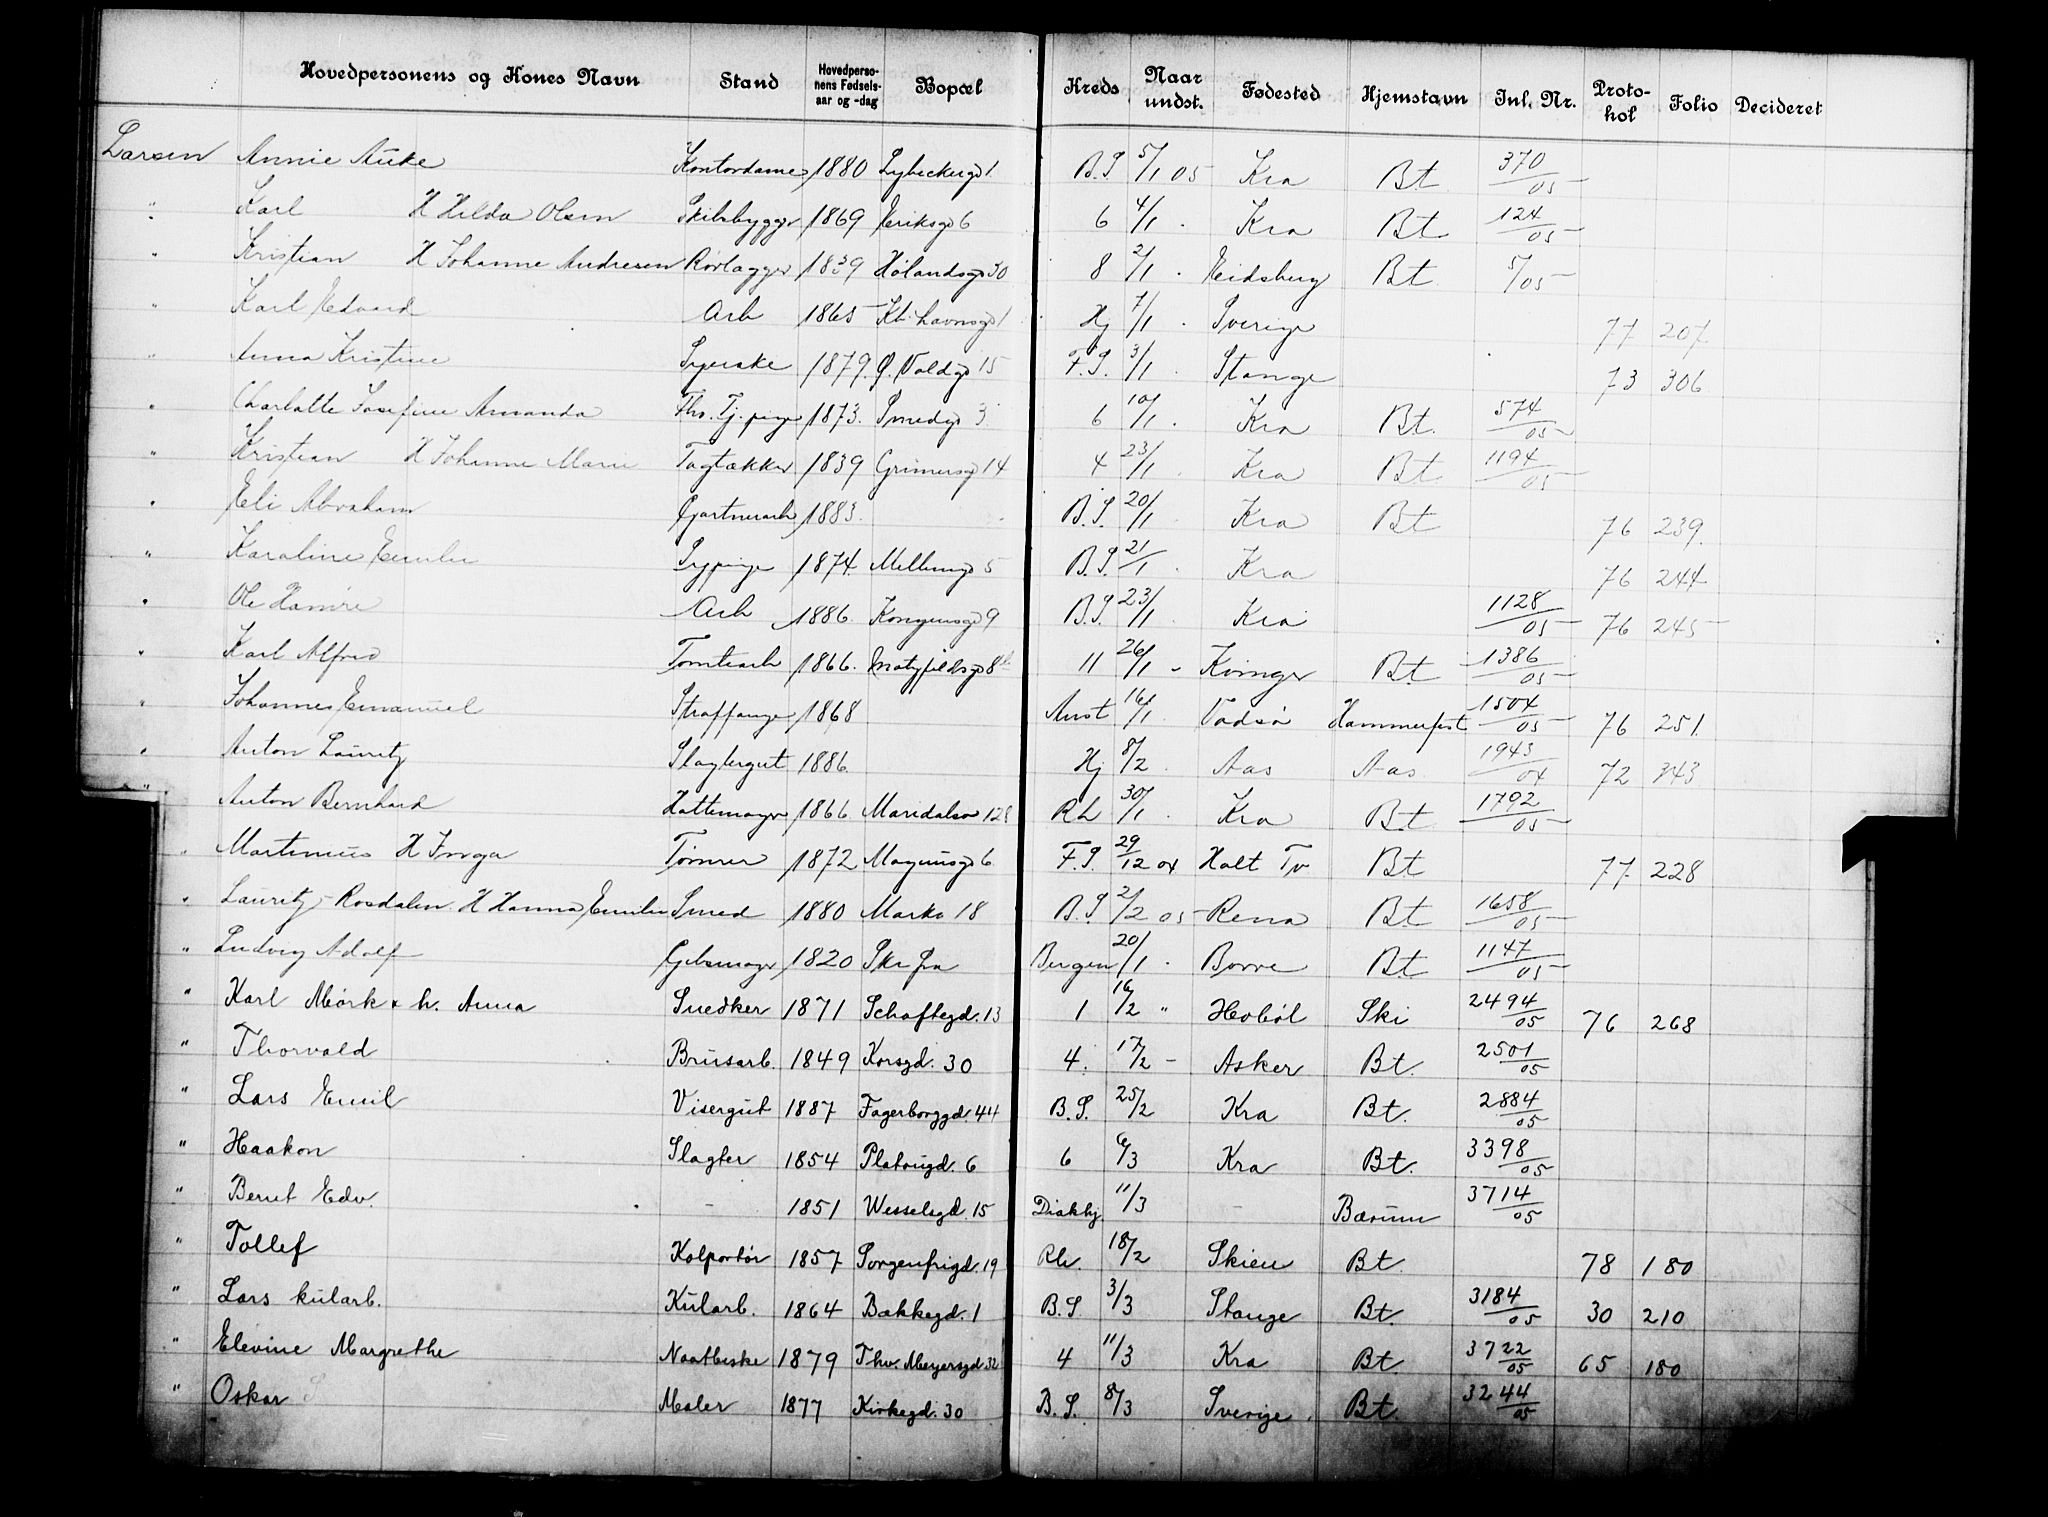 Hovedpersonens og Kones Navn | Stand | Hovedperso-nens Fødsels-aar og -dag | Bopæl | Kreds | Naar undst. | Fødested | Hjemstavn | Inl. Nr. | Proto-kol | Folio | Decideret
Larsen Annie Auke Kontordame 1880 Lybeckergd 1. B.S. 5/1 05 Kra Bt 370/05
" Karl H Hilda Olsen Skibsbygger 1869 Eriksgd 6 6 4/1 . Kra Bt 124/05
" Kristian H Johanne Andresen Rørlægger 1839 Hølandsgd 30 8 2/1 . Eidsberg Bt 5/05
" Karl Edvard Arb 1865 Kb.havnsgd 1 Hj 7/1 . Sverige 77 207
" Anna Kristine Syerske 1879. Ø. Voldgd 15 F.S. 3/1 . Stange 73 306
" Charlotte Josefine Amanda Fhv. Tj.pige 1873. Smedgd 3 6 10/1 . Kra Bt. 574/05
" Kristian H Johanne Marie Tagtækker 1839 Grimersgd 14 4 23/1 . Kra Bt 1194/05
" Eli Abraham Gartnerarb 1883. B.S. 20/1 . Kra Bt 76 239.
" Karoline Emilie Sypige 1874. Mellemgd 5 B.S. 21/1 . Kra 76 244
" Ole Arb 1886. Kongensgd 9 B.S. 23/1 . Kra 1128/05 76 245
" Karl Alfred Tomtearb 1866. 8 11 26/1 - Kvinger Bt 1386/05
" Johannes Emanuel Straffange 1868 Anst 16/1 . Vadsø Hammerfest 1504/05 76 251.
" Anton Lauritz Slagtergut 1886. Hj 8/2 . Aas Aas 1943/04 72 343
" Anton Bernhard Hattemager 1866. Maridalsv 128 Rh 30/1 . Kra Bt. 1792/05
" Martinius H Inga Tømrer 1872 Magnusgd 6 F.S. 29/12 04 Holt Tv Bt 77 228
" Lauritz Rosdalen H Hanna Emilie Smed 1880 Markv 18 B.S 2/2 05 Rena Bt 1658/05
" Ludvig Adolf Gibsmager 1820 Bergen 20/1 . Borre Bt 1147/05
" Karl Mørk & h. Anna Snedker 1871 Schaftegd. 13 1 16/2 " Hobøl Ski 2494/05 76 268
" Thorvald Brusarb. 1849 Korsgd. 30 4. 17/2 - Asker Bt. 2501/05
" Lars Emil Visergut 1887 Fagerborggd. 44 B.S. 25/2 Kra Bt. 2884/05
" Haakon Slagter 1854 Platougd. 6 6 6/3 Kra Bt. 3398/05
" Bernt Edv. - 1851 Wesselsgd. 15 Diakhj. 11/3 - Bærum 3714/05
" Tollef Kolportør 1857 Sorgenfrigd. 19 Rh. 18/2 Skien Bt. 78 180
" Lars kularb. Kularb. 1864 Bakkegd. 1 B.S. 3/3 Stange Bt. 3184/05 30 210
" Elevine Margrethe Naatleske 1879 Thv. Meyersgd. 32 4 11/3 Kra Bt. 3722/05 65 180
" Oskar S Maler 1877 Kirkegd. 30 B.S. 8/3 Sverige. Bt. 3244/05